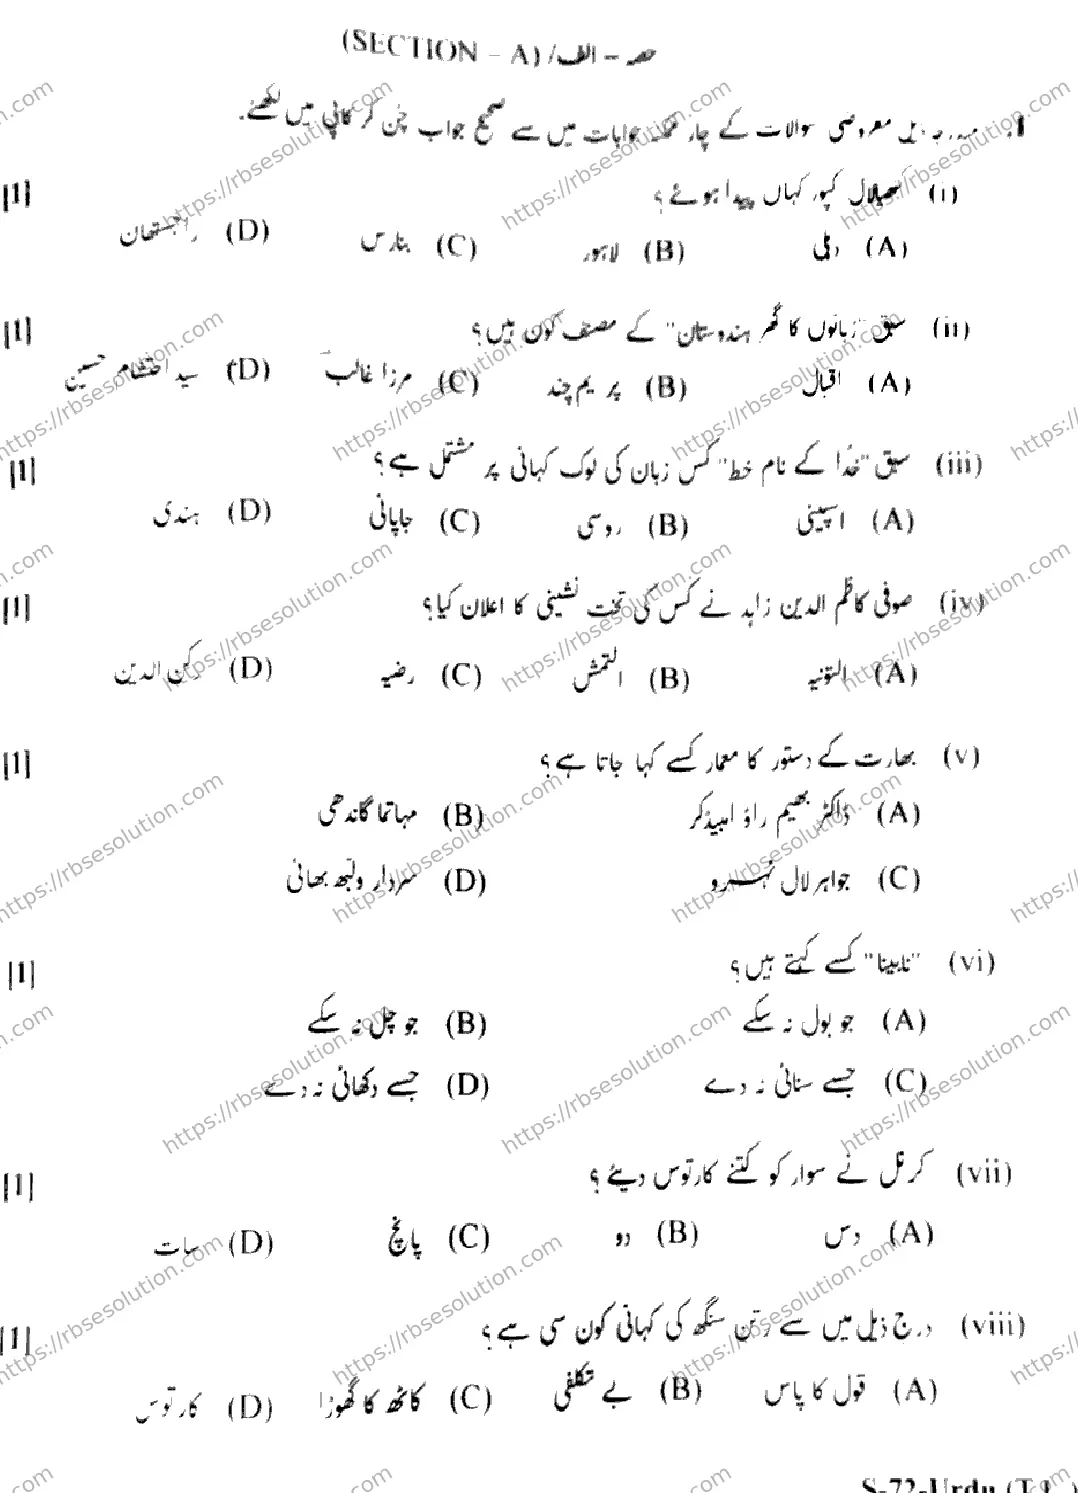 حصہ – الف/ (SECTION – A)
1. مندرجہ ذیل معروضی سوالات کے چار جوابات میں سے صحیح جواب چن کر کاپی میں لکھئے۔
(i) کنھیالال کپور کہاں پیدا ہوئے؟ [1]
(A) دہلی (B) لاہور (C) بنارس (D) راجستھان
(ii) سبق "زبانوں کا گھر ہندوستان" کے مصنف کون ہیں؟ [1]
(A) اقبال (B) پریم چند (C) مرزا غالب (D) سید احتشام حسین
(iii) سبق "خدا کے نام خط" کس زبان کی لوک کہانی پر مشتمل ہے؟ [1]
(A) اسپینی (B) روسی (C) جاپانی (D) ہندی
(iv) صوفی کاظم الدین زاہد نے کس کی تخت نشینی کا اعلان کیا؟ [1]
(A) التونیہ (B) التمش (C) رضیہ (D) رکن الدین
(v) بھارت کے دستور کا معمار کسے کہا جاتا ہے؟ [1]
(A) ڈاکٹر بھیم راؤ امبیڈکر (B) مہاتما گاندھی
(C) جواہر لال نہرو (D) سردار ولبھ بھائی
(vi) "نابینا" کسے کہتے ہیں؟ [1]
(A) جو بول نہ سکے (B) جو چل نہ سکے
(C) جسے سنائی نہ دے (D) جسے دکھائی نہ دے
(vii) کرنل نے سوار کو کتنے کارتوس دیئے؟ [1]
(A) دس (B) دو (C) پانچ (D) سات
(viii) درج ذیل میں سے رتن سنگھ کی کہانی کون سی ہے؟ [1]
(A) قول کا پاس (B) بے تکلفی (C) کاٹھ کا گھوڑا (D) کارتوس
S-72-Urdu
https://rbsesolution.com